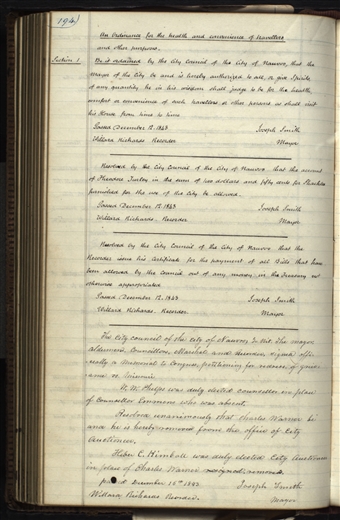 194
An Ordinance for the health and convenience of travellers
and other purposes.
Section 1. Be it ordained by the City Council of the City of Nauvoo, that the
Mayor of the City be and is hereby authorized to sell or give Spirits
of any quantity he in his wisdom shall judge to be for the health,
comfort or convenience of such travellers or other persons as shall visit
his House from time to time
Passed December 12. 1843 Joseph Smith
Willard Richards Recorder Mayor
Resolved by the City Council of the City of Nauvoo, that the amount
of Theodore Turley in the sum of two dollars and fifty cents for
furnished for the use of the City be allowed.
Passed December 12. 1843 Joseph Smith
Willard Richards, Recorder Mayor
Resolved by the City Council of the City of Nauvoo that the
Recorder issue his Certificate for the payment of all Bills that have
been allowed by the Council out of any money in the Treasury not
otherwise appropriated
Passed December 12. 1843 Joseph Smith
Willard Richards. Recorder Mayor
The City council of the city of Nauvoo The mayor
Aldermen, Councillors, Marshal, and
a Memorial to Congress petitioning for redress of
W. W. Phelps was duly elected councillor in place
of Councillor who was absent.
unanimously that Charles Warner be
and he is hereby removed from the office of City
Auctioneer,
Heber C. Kimball was duly elected City Auctioneer
in place of Charles Warner removed
passed December 1843 Joseph Smith
Willard Richards Recorder. Mayor